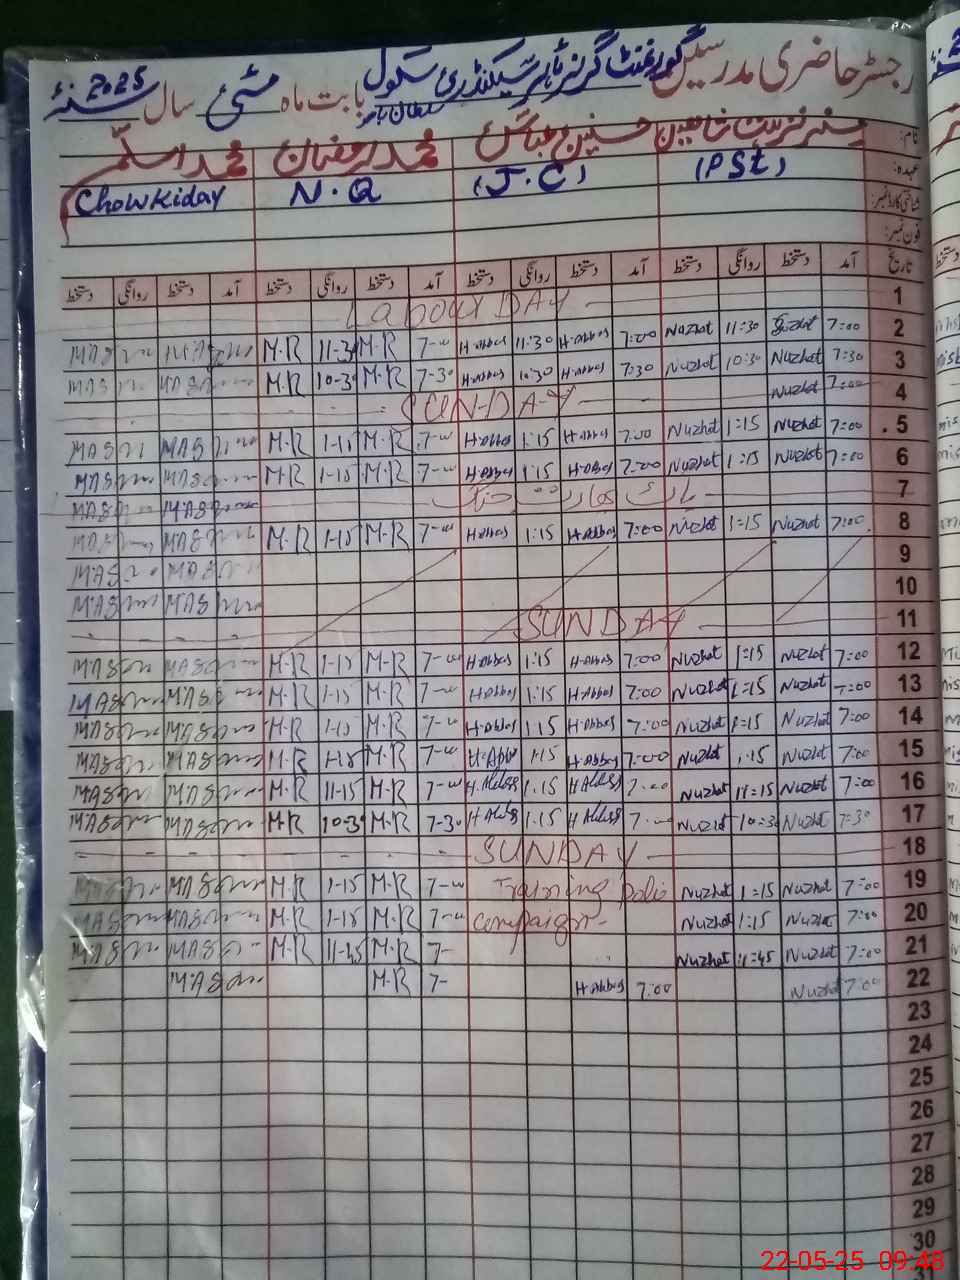 رجسٹر حاضری مدرسین گورنمنٹ گرلز ہائر سیکنڈری سکول بابت ماہ مئی سال 2025
نام: مسز نزہت شاہین حسنین عباس محمد رمضان محمد اسلم
عہدہ: (PST) (J.C) N.Q Chowkiday
شناختی کارڈ نمبر:
فون نمبر:
تاریخ آمد دستخط روانگی دستخط آمد دستخط روانگی دستخط آمد دستخط روانگی دستخط آمد دستخط روانگی دستخط
1 Labour DAY
2 7:00 Nuzhat 11:30 Nuzhat 7:00 H-Abbas 11:30 H-Abbas 7- M.R 11-30 M.R MAS
3 7:30 Nuzhat 10:30 Nuzhat 7:30 H-Abbas 10:30 H-Abbas 7-30 M.R 10-30 M.R MAS MAS
4 7:00 Nuzhat SUN-DAY
5 7:00 Nuzhat 1:15 Nuzhat 7:00 H-Abbas 1:15 H-Abbas 7- M.R 1-15 M.R MAS MAS
6 7:00 Nuzhat 1:15 Nuzhat 7:00 H-Abbas 1:15 H-Abbas 7- M.R 1-15 M.R MAS MAS
7 پاک بھارت جنگ MAS MAS
8 7:00 Nuzhat 1:15 Nuzhat 7:00 H-Abbas 1:15 H-Abbas 7- M.R 1-15 M.R MAS MAS
9 MAS MAS
10 MAS MAS
11 SUNDAY
12 7:00 Nuzhat 1:15 Nuzhat 7:00 H-Abbas 1:15 H-Abbas 7- M.R 1-15 M.R MAS MAS
13 7:00 Nuzhat 1:15 Nuzhat 7:00 H-Abbas 1:15 H-Abbas 7- M.R 1-15 M.R MAS MAS
14 7:00 Nuzhat 1:15 Nuzhat 7:00 H-Abbas 1:15 H-Abbas 7- M.R 1-15 M.R MAS MAS
15 7:00 Nuzhat 1:15 Nuzhat 7:00 H-Abbas 1:15 7- M.R 1-15 M.R MAS MAS
16 7:00 Nuzhat 11:15 Nuzhat 7:00 H Abbas 1:15 H-Abbas 7- M.R 11-15 M.R MAS MAS
17 7:30 Nuzhat 10:30 Nuzhat H Abbas 1:15 H Abbas 7-30 M.R 10-30 M.R MAS MAS
18 SUNDAY
19 7:00 Nuzhat 1:15 Nuzhat Training polio 7- M.R 1-15 M.R MAS MAS
20 7:00 Nuzhat 1:15 Nuzhat compaign- 7- M.R 1-15 M.R MAS MAS
21 7:00 Nuzhat 11:45 Nuzhat 7- M.R 11-45 M.R MAS MAS
22 7:00 Nuzhat 7:00 H-Abbas 7- M.R MAS
23
24
25
26
27
28
29
30
22-05-25 09:48